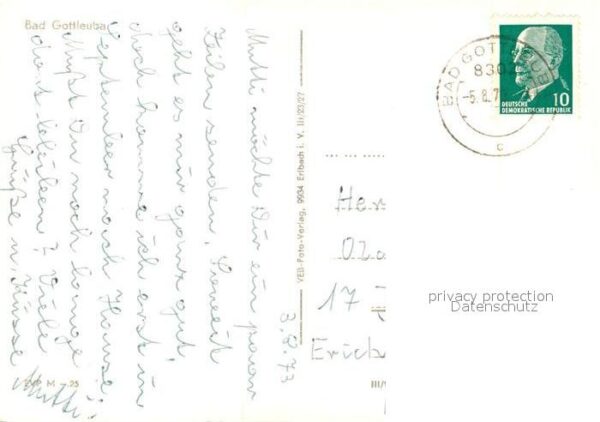 Bad Gottleuba
3.8.73
Mutti möchte Dir ein paar
Zeilen senden. Soweit
geht es mir ganz gut,
doch komme ich erst im
September nach Hause.
Mußt Du noch lange
dort bleiben? Viele
Grüße u. Küsse
Mutti
M - 25
VEB-Foto-Verlag, 9934 Erlbach i. V. III/23/27
BAD GOTT
8302
-5.8.7
c
DEUTSCHE
DEMOKRATISCHE REPUBLIK
10
Her
17
Erich
privacy protection
Datenschutz